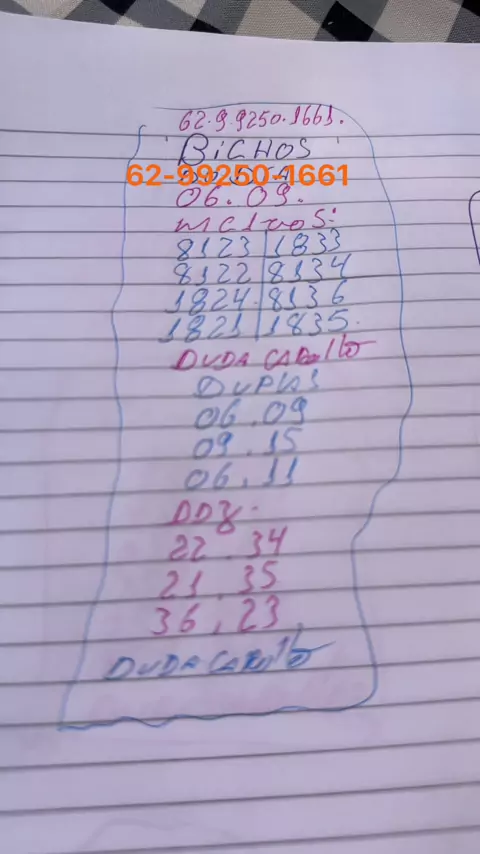 62.9.9250.1661.
BiCHOS
62-99250-1661
06.09.
8123 | 1833
8122 | 8134
1824. | 8136
1821 | 1835.
DUDA CARollo
DUPLAS
06.09
09.15
06.11
DDZ.
22.34
21.35
36.23
DUDA CARollo